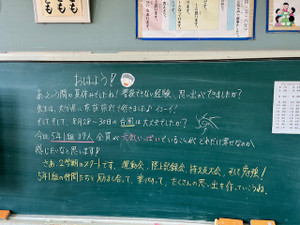 ども
も
おはよう!
あっという間の夏休みでしたね!普段できない経験、思い出ができましたか?
先生は、大分県に家族旅行に行きましたよ イェーイ!
そしてそして、8月29~30日の台風は大丈夫でしたか?
今日、5年1組37人全員が元気いっぱいでいることが、どれだけ幸せなのか
感じたいなと思います!
さあ、2学期のスタートです。運動会、陸上記録会、持久走大会、そして勉強!
5年1組の仲間たちと励まし合って、学び合って、たくさんの思い出を作っていこうね。